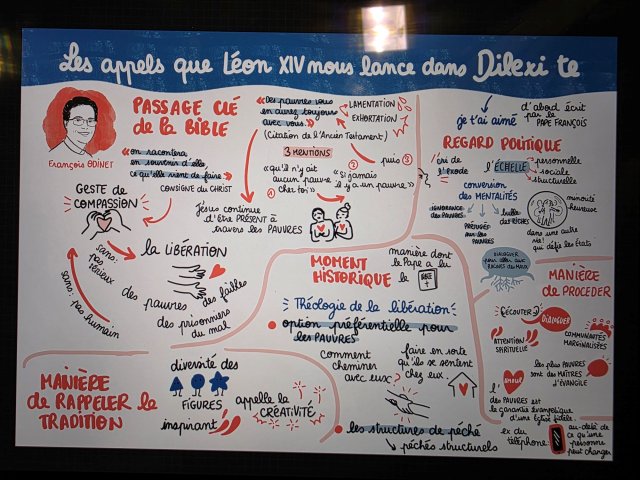 Les appels que Léon XIV nous lance dans Dilexi te
François ODINET
PASSAGE CLÉ
de la BIBLE
"on racontera,
en souvenir d'elle,
ce qu'elle vient de faire"
CONSIGNE du CHRIST
GESTE de
COMPASSION
"Des pauvres vous
en aurez toujours
avec vous."
LAMENTATION
EXHORTATION
(Citation de l'Ancien Testament)
3 MENTIONS
① "qu'il n'y ait
aucun pauvre
chez toi"
② "Si jamais
il y a un pauvre"
puis ③
Jésus continue
d'être PRÉSENT à
travers les PAUVRES
la LIBÉRATION
des pauvres
des prisonniers
du mal
des failles
sans: pas
sérieux
sans: pas humain
MANIÈRE
de RAPPELER la
TRADITION
diversité des
FIGURES
inspirant
appelle la
CRÉATIVITÉ
MOMENT
HISTORIQUE
manière dont
le Pape a lu
la
Théologie de la libération
option préférentielle pour
les PAUVRES
comment
cheminer
avec eux?
faire en sorte
qu'ils se sentent
chez eux
les structures de péché
péchés structurels
je t'ai aimé
d'abord écrit
par le
PAPE FRANÇOIS
REGARD POLITIQUE
cri de
l'exode
l'ÉCHELLE
personnelle
sociale
structurelle
conversion
des MENTALITÉS
IGNORANCE
des PAUVRES
PRÉJUGÉ
sur les
PAUVRES
bulle
des RICHES
minorité
heureuse
dans une autre
vie!
qui défie les États
DIALOGUER
pour aller aux
RACINES DU MAL
MANIÈRE
de PROCÉDER
ÉCOUTER
DIALOGUER
ATTENTION
SPIRITUELLE
COMMUNAUTÉS
MARGINALISÉES
les plus PAUVRES
sont des MAÎTRES
d'ÉVANGILE
l'AMOUR
des PAUVRES est
la garantie évangélique
d'une Église fidèle
ex du
téléphone:
au-delà de
ce qu'une
personne
peut changer